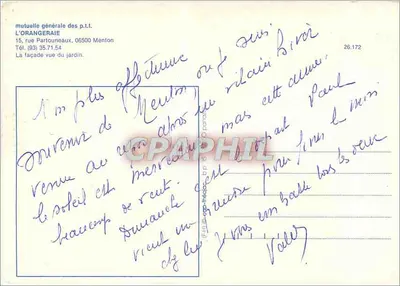 mutuelle générale des p.t.t.
L'ORANGERAIE
15, rue Partouneaux, 06500 Menton
Tél. (93) 35.71.54
La façade vue du jardin.
26.172
Mon plus affectueux
souvenir de Menton où je suis
venue au mois après un vilain hiver
le soleil est merveilleux mais cette année
beaucoup de vent.
Dimanche c'est Paul
vient me pour finir le mois
chez lui. Je vous embrasse tous les deux
CPARPHIL